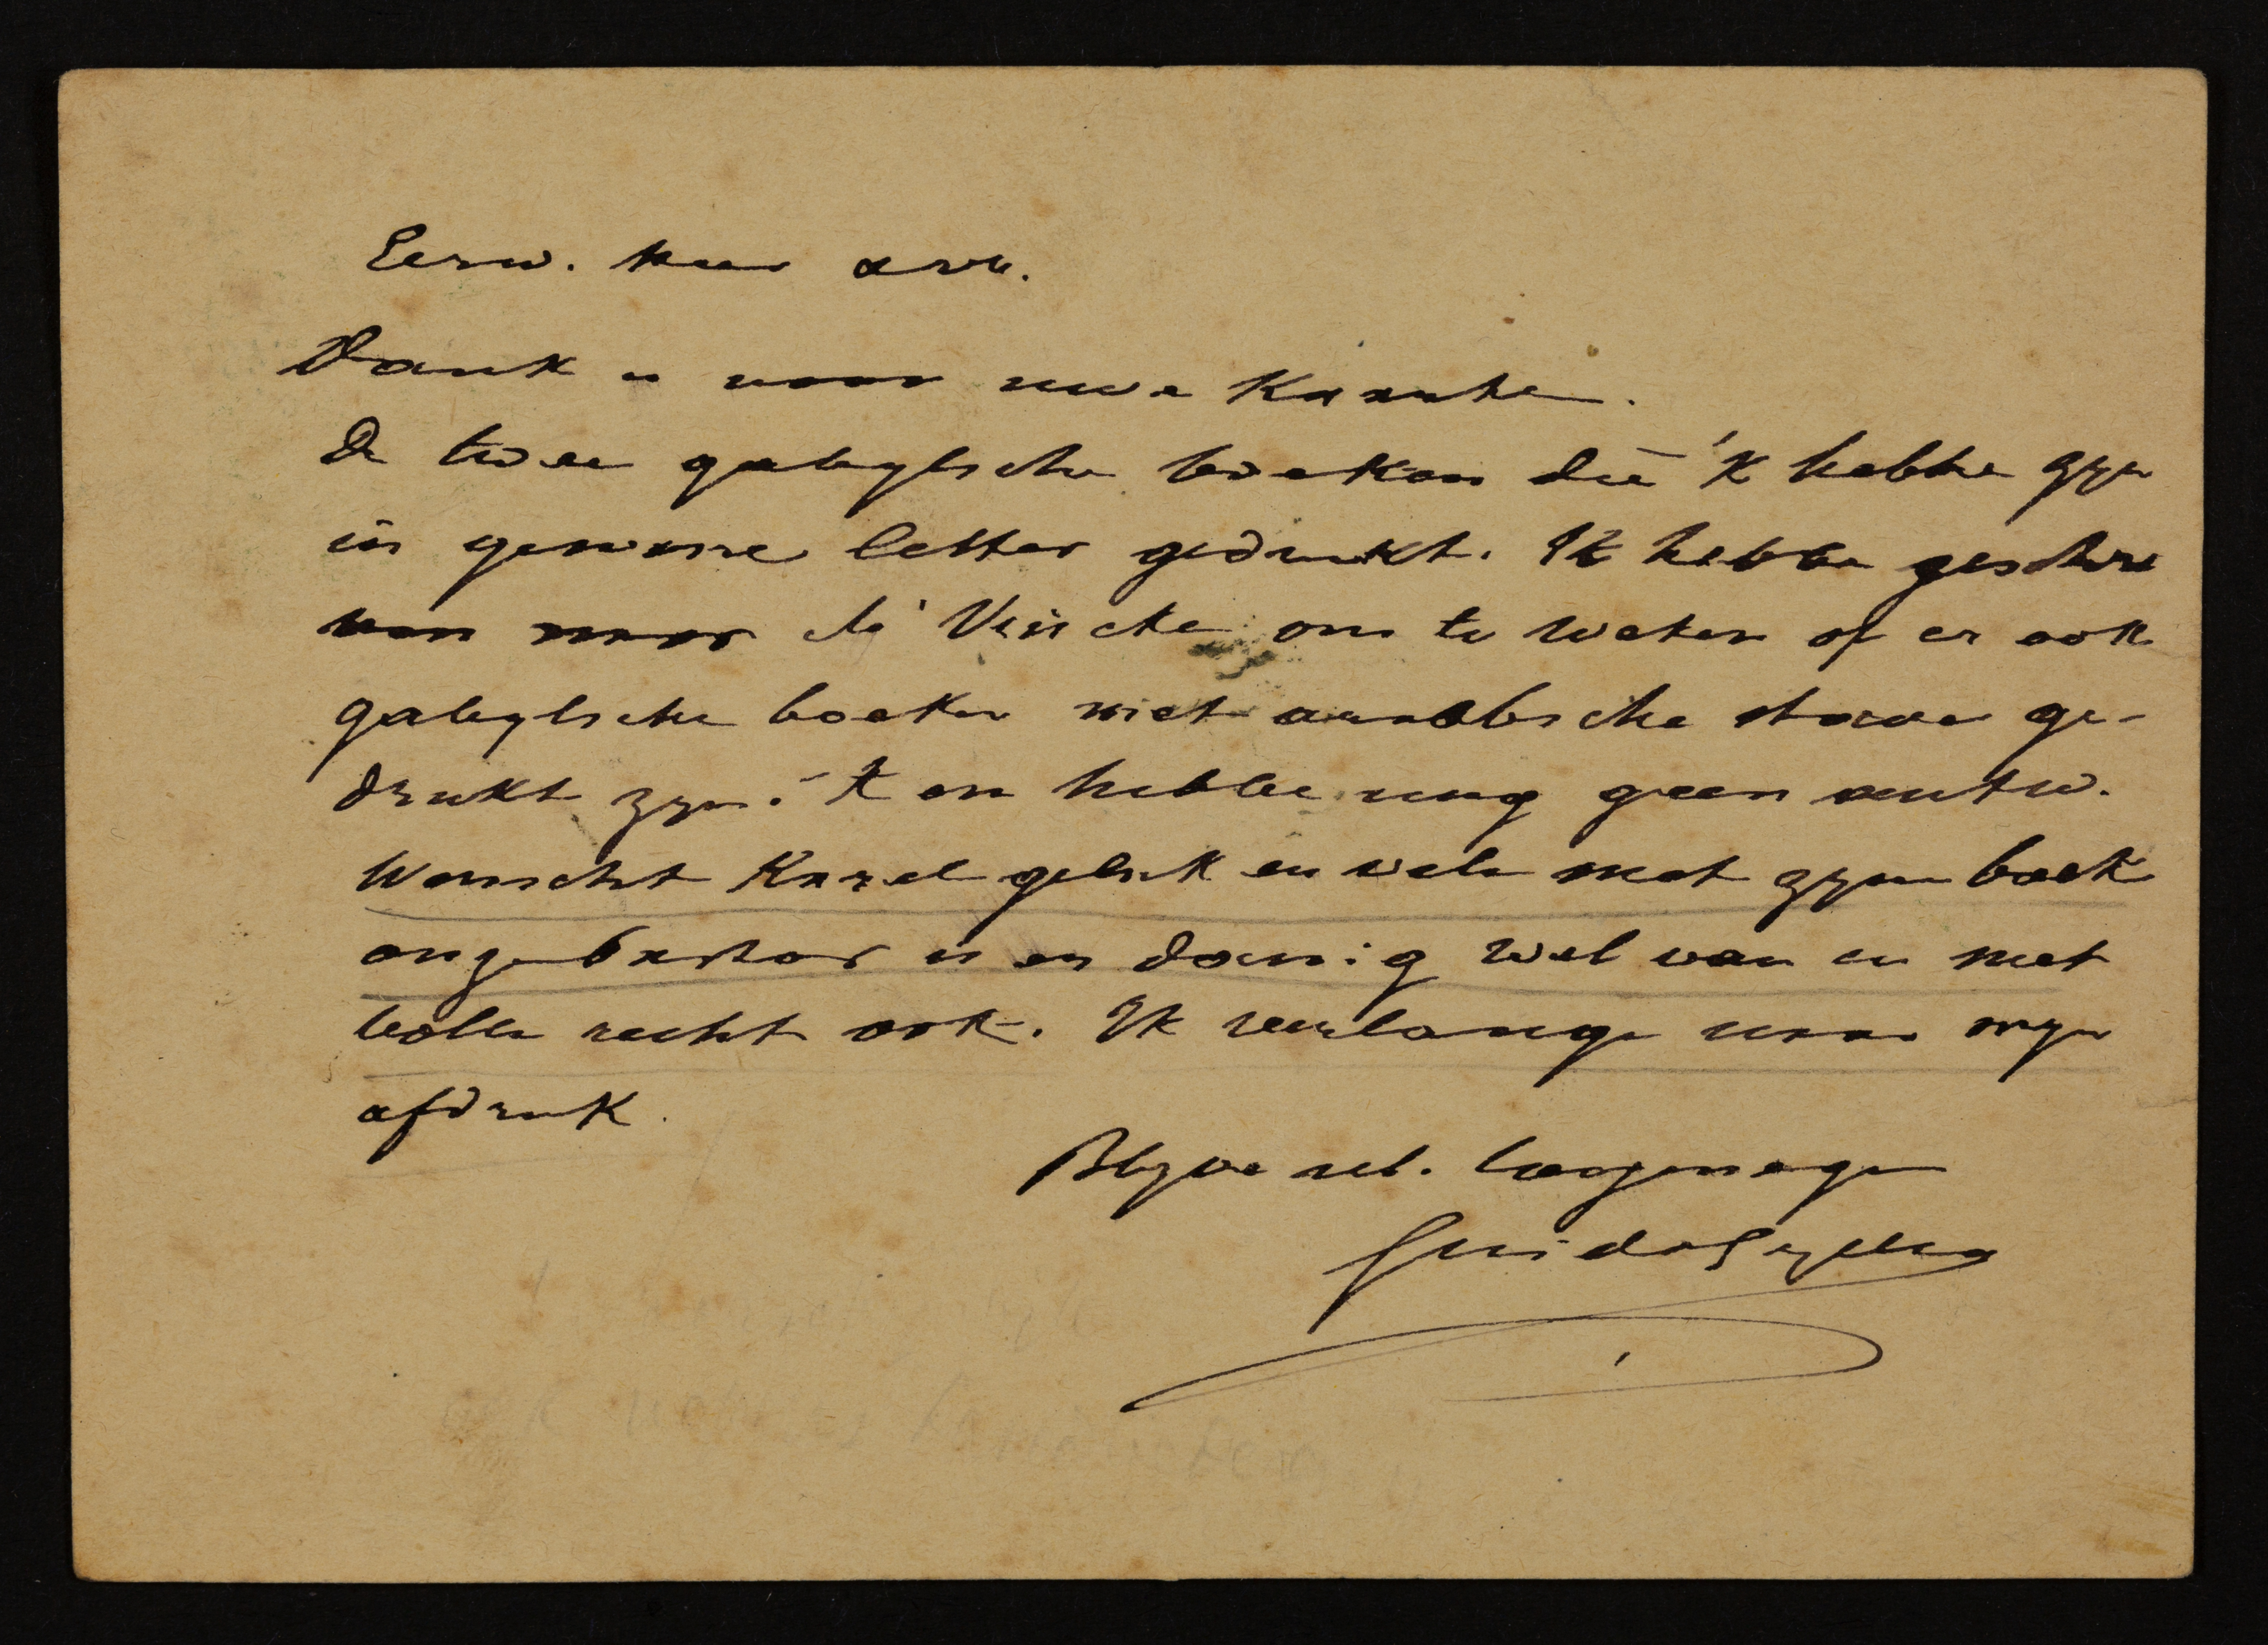 Eerw. heer enz.
Dank u voor uwe kaarte.
De twee qabylsche boeken die 'k hebbe zyn
in gewone letter gedrukt. Ik hebbe geschre
ven naar de Vrische om te weten of er ook
qabylsche boeken met arabbische staven ge-
drukt zyn. 'k en hebbe nog geen antw.
Wenscht Karel geluk en vele met zynen boek
onze is er danig wel van en met
volle recht ook. Ik verlange naar myn
afdruk.
Blyve uel. toegenegen
Guido Gezelle